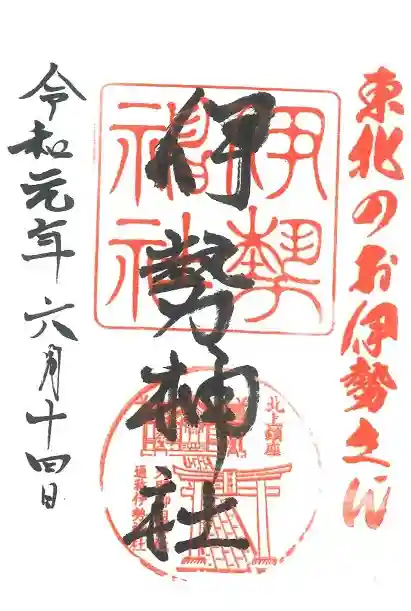 東北のお伊勢さん
伊勢神社
伊勢
神社
北上鎮座
令和元年六月十四日